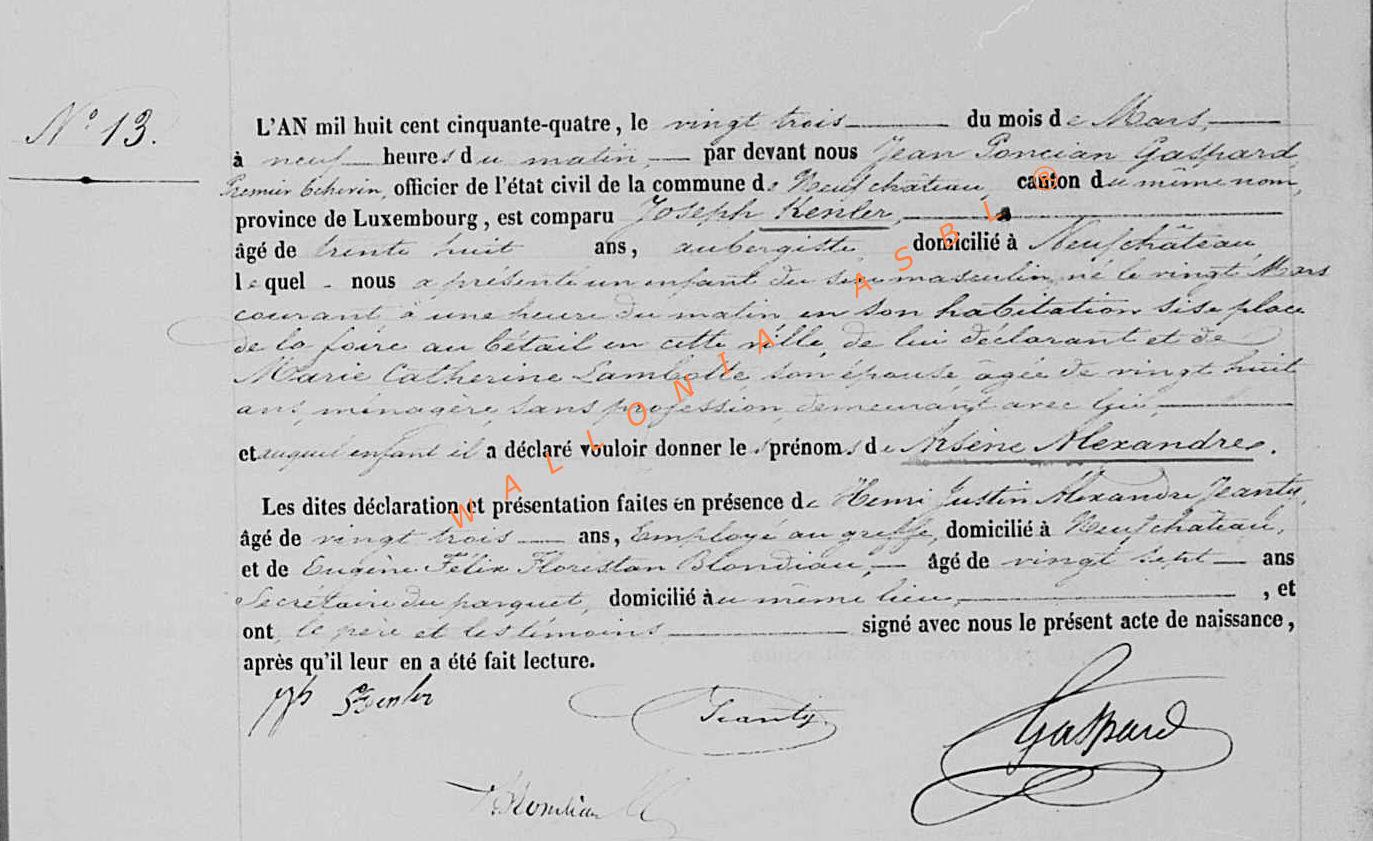 N° 13.
L'AN mil huit cent cinquante-quatre, le vingt trois du mois de Mars,
à neuf heures du matin, par devant nous Jean Poncian Gaspard,
Premier Echevin, officier de l'état civil de la commune de Neufchâteau, canton du même nom,
province de Luxembourg, est comparu Joseph Kenler,
âgé de trente huit ans, aubergiste, domicilié à Neufchâteau,
lequel nous a présenté un enfant du sexe masculin, né le vingt Mars
courant à une heure du matin en son habitation sise place
de la foire au bétail en cette ville, de lui déclarant et de
Marie Catherine Lambotte, son épouse, âgée de vingt huit
ans, ménagère, sans profession, demeurant avec lui,
et auquel enfant il a déclaré vouloir donner les prénoms de Arsène Alexandre.
Les dites déclaration et présentation faites en présence de Henri Justin Alexandre Jeanty,
âgé de vingt trois ans, Employé au greffe, domicilié à Neufchâteau,
et de Eugène Félix Floristan Blondiau, âgé de vingt sept ans
Secrétaire du parquet, domicilié au même lieu, , et
ont le père et les témoins signé avec nous le présent acte de naissance,
après qu'il leur en a été fait lecture.
Jph Kenler
Jeanty
Gaspard
Blondiau
WALLONIA ASBL ®